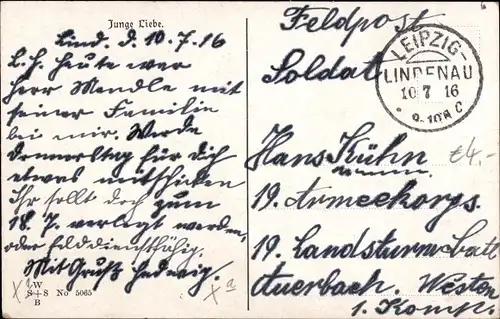 Junge Liebe.
Lind. d. 10.7.16
L.H. Heute war
Herr Mendle mit
seiner Familie
bei mir. Werde
Donnerstag für Dich
etwas mitschicken
Ihr sollt doch zum
18. 7. verlegt werden,
oder
Mit Gruß Hedwig.
W
S+S No 5065
B
Feldpost
Soldat
LEIPZIG-
LINDENAU
10 7 16
Hans Kühn
19. Armeekorps
19. Landsturmbatt
Auerbach. Westen
1. Komp.
€4.-
x a